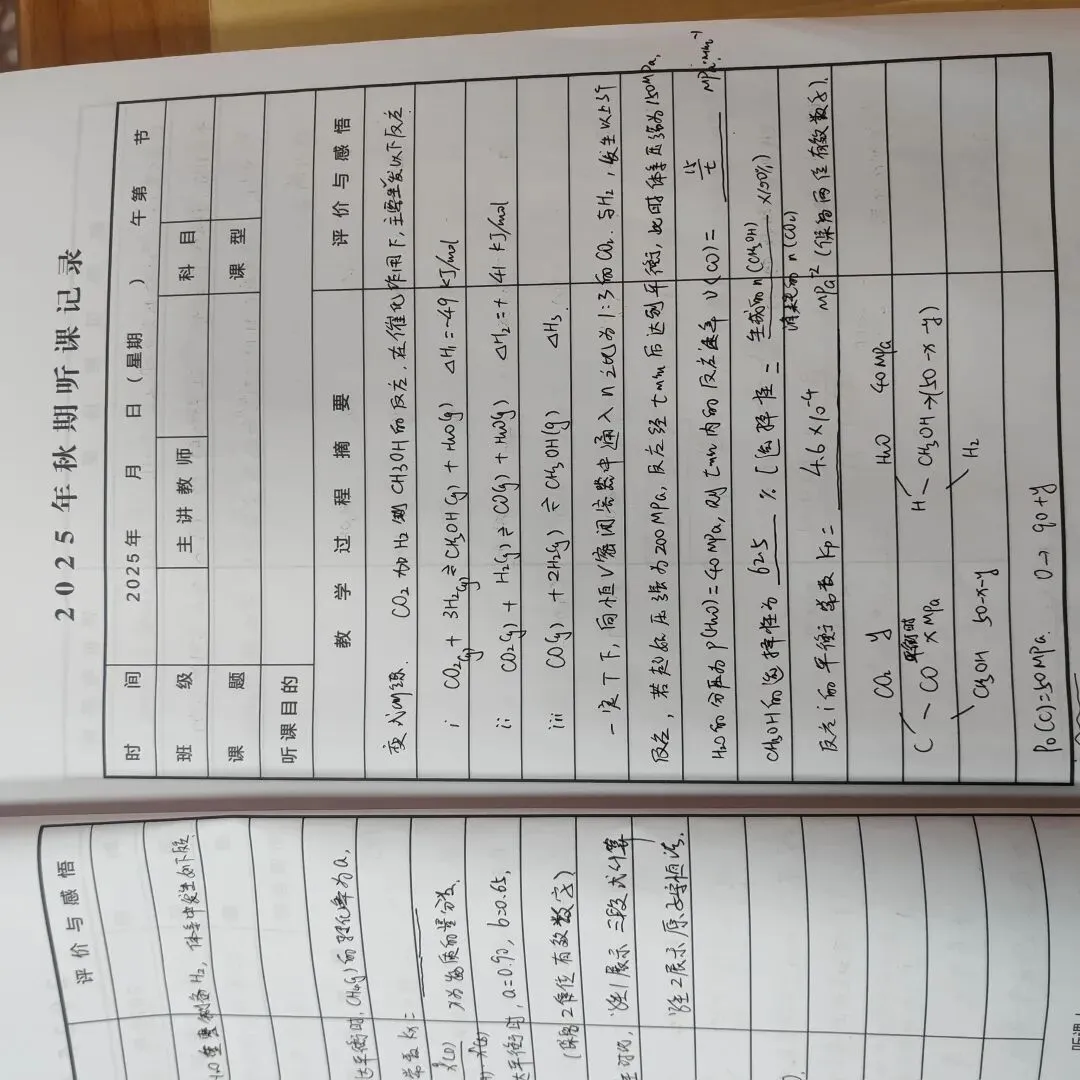 2025年秋期听课记录
时 间 2025年 月 日(星期 ) 午第 节
班 级 主讲教师 科 目
课 题 课 型
听课目的
教 学 过 程 摘 要 评价与感悟
变式训练. CO₂加H₂制CH3OH的反应,在催化作用下,主要发以下反应
i CO₂(g) + 3H₂(g) ⇌ CH₃OH(g) + H₂O(g) ΔH₁=-49 kJ/mol
ii CO₂(g) + H₂(g) ⇌ CO(g) + H₂O(g) ΔH₂=+41 kJ/mol
iii CO(g) + 2H₂(g) ⇌ CH₃OH(g) ΔH₃
一定T下,向恒V密闭容器中通入n之比为1:3的CO₂与H₂,发生以上3个
反应,若起始压强为200MPa,反应经tmin后达到平衡,此时体系压强为150MPa,
H₂O的分压为P(H₂O)=40MPa,则tmin内的反应速率υ(CO)= 15/t MPa·min⁻¹
CH₃OH的选择性为 62.5 % [选择性= 生成的n(CH₃OH)/消耗的n(CO₂) ×100%]
反应i的平衡常数Kp= 4.6×10⁻⁴ MPa⁻² (保留两位有效数字).
CO₂ y H₂O 40MPa
C — CO 平衡时 x MPa H — CH₃OH→(50-x-y)
CH₃OH 50-x-y H₂
P₀(C)=50MPa. O→ 90+y
评价与感悟
制备H₂,体系中发生如下反应
达平衡时,CH₄(g)的转化率为a,
常数Kx=
x为物质的量分数.
达平衡时,a=0.90,b=0.65,
(保留2位有效数字)
生1展示三段式计算
生2展示原子守恒法.